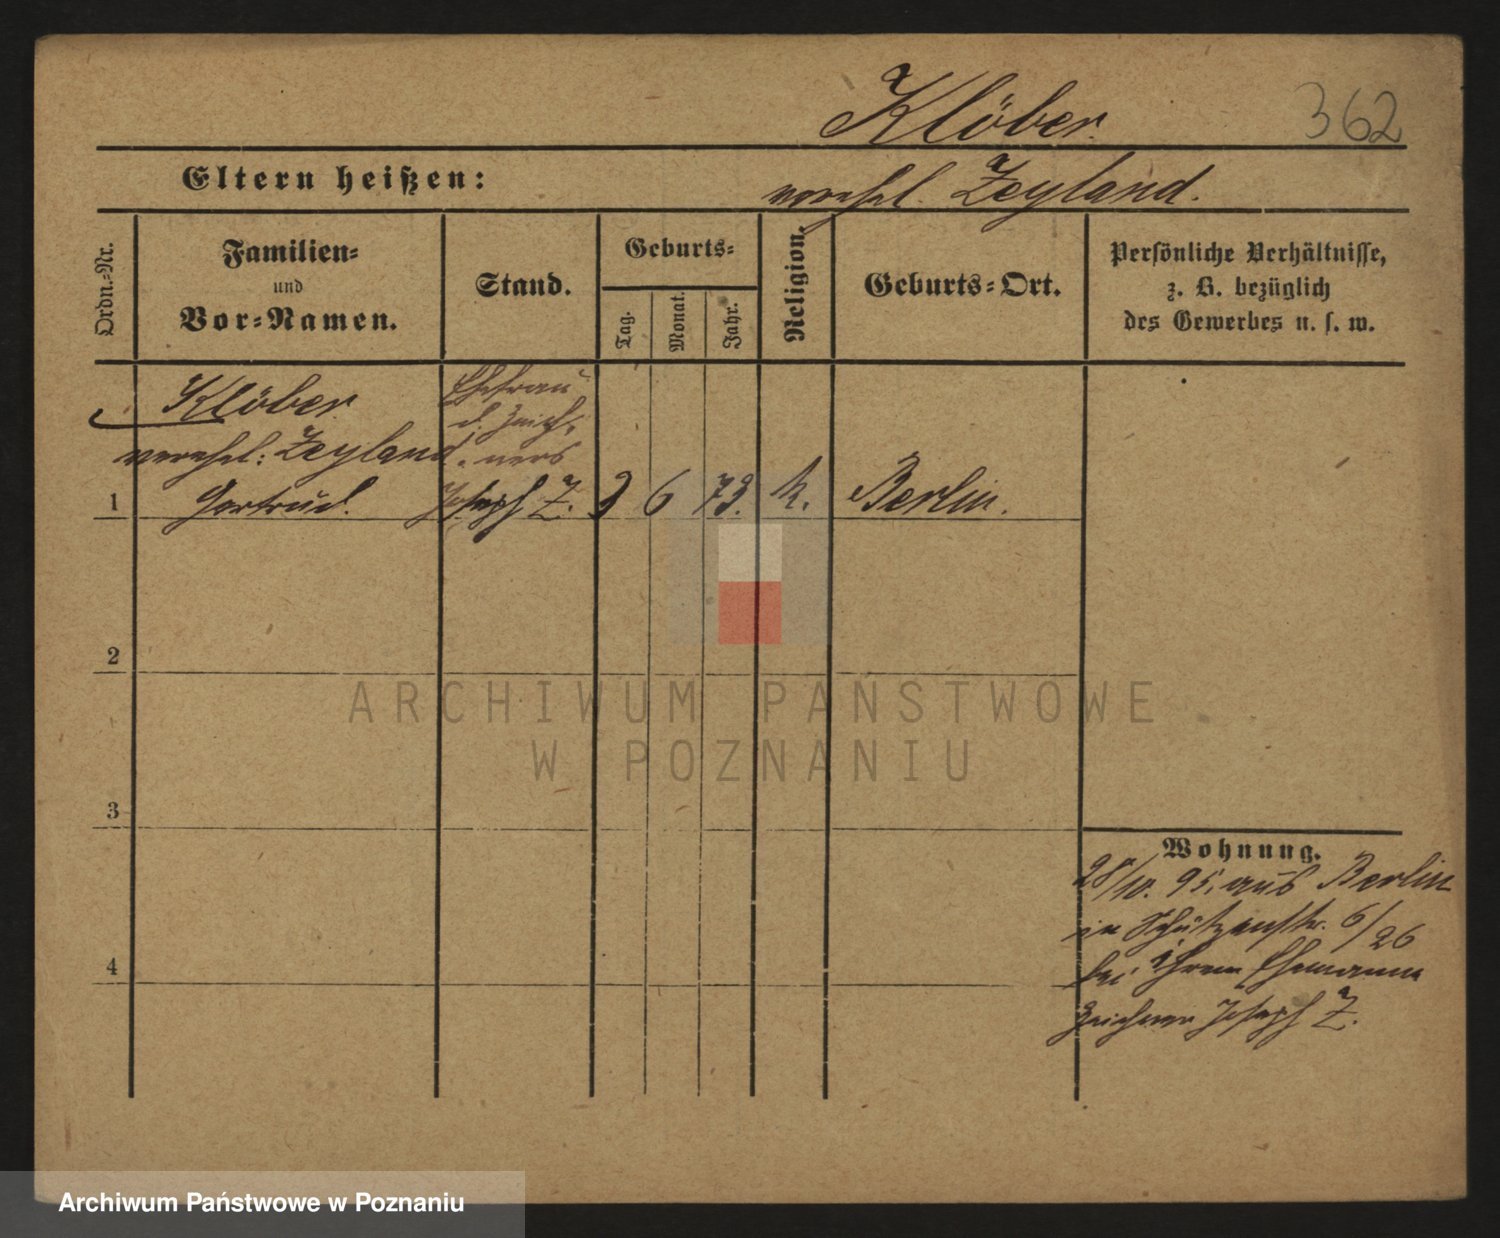 Klöber. 362
Eltern heißen: verehel. Zeyland.
Ordn.-Nr.
Familien-
und
Vor-Namen.
Stand.
Geburts-
Tag.
Monat.
Jahr.
Religion.
Geburts-Ort.
Persönliche Verhältnisse,
z. B. bezüglich
des Gewerbes u. s. w.
Klöber
verehel: Zeyland
Gertrud.
Ehefrau
d. Zeich-
ners
Joseph Z.
1 3 6 73. k. Berlin.
2
3
4
ARCHIWUM PAŃSTWOWE
W POZNANIU
Wohnung.
28/10. 95. aus Berlin
in Schützenstr. 6/26
bei ihrem Ehemanne
Zeichner Joseph Z.
Archiwum Państwowe w Poznaniu